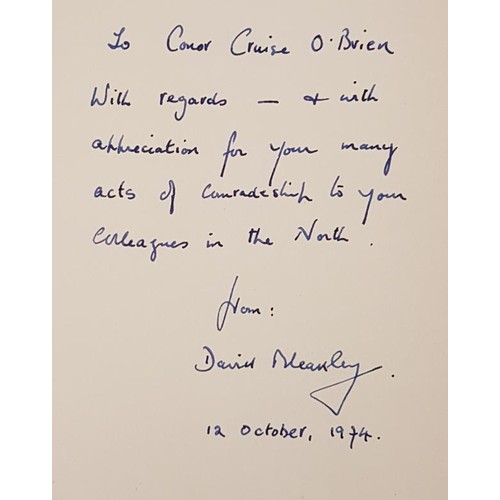 To Conor Cruise O'Brien
With regards – & with
appreciation for your many
acts of comradeship to your
colleagues in the North.
from:
David Bleakley.
12 October, 1974.